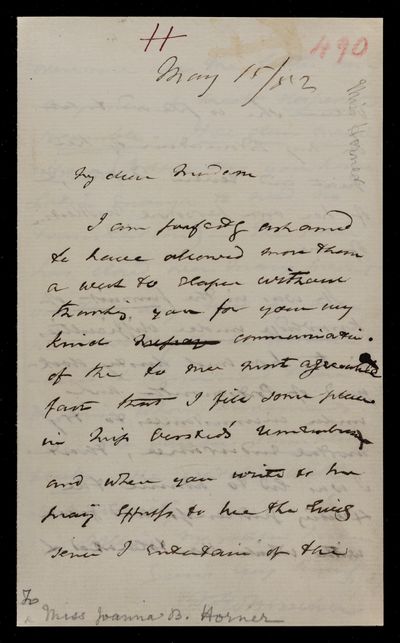 H
490
May 15/52
Miss Horner
My dear Madam
I am perfectly ashamed
to have allowed more than
a week to elapse without
thanking you for your very
kind communication
of the to me most agreeable
fact that I fill some place
in Miss remembrance
and when you write to her
pray express to her the lively
sense I entertain of this
To
Miss Joanna B. Horner